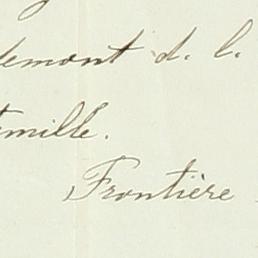 demont d. l.
mille.
Frontière